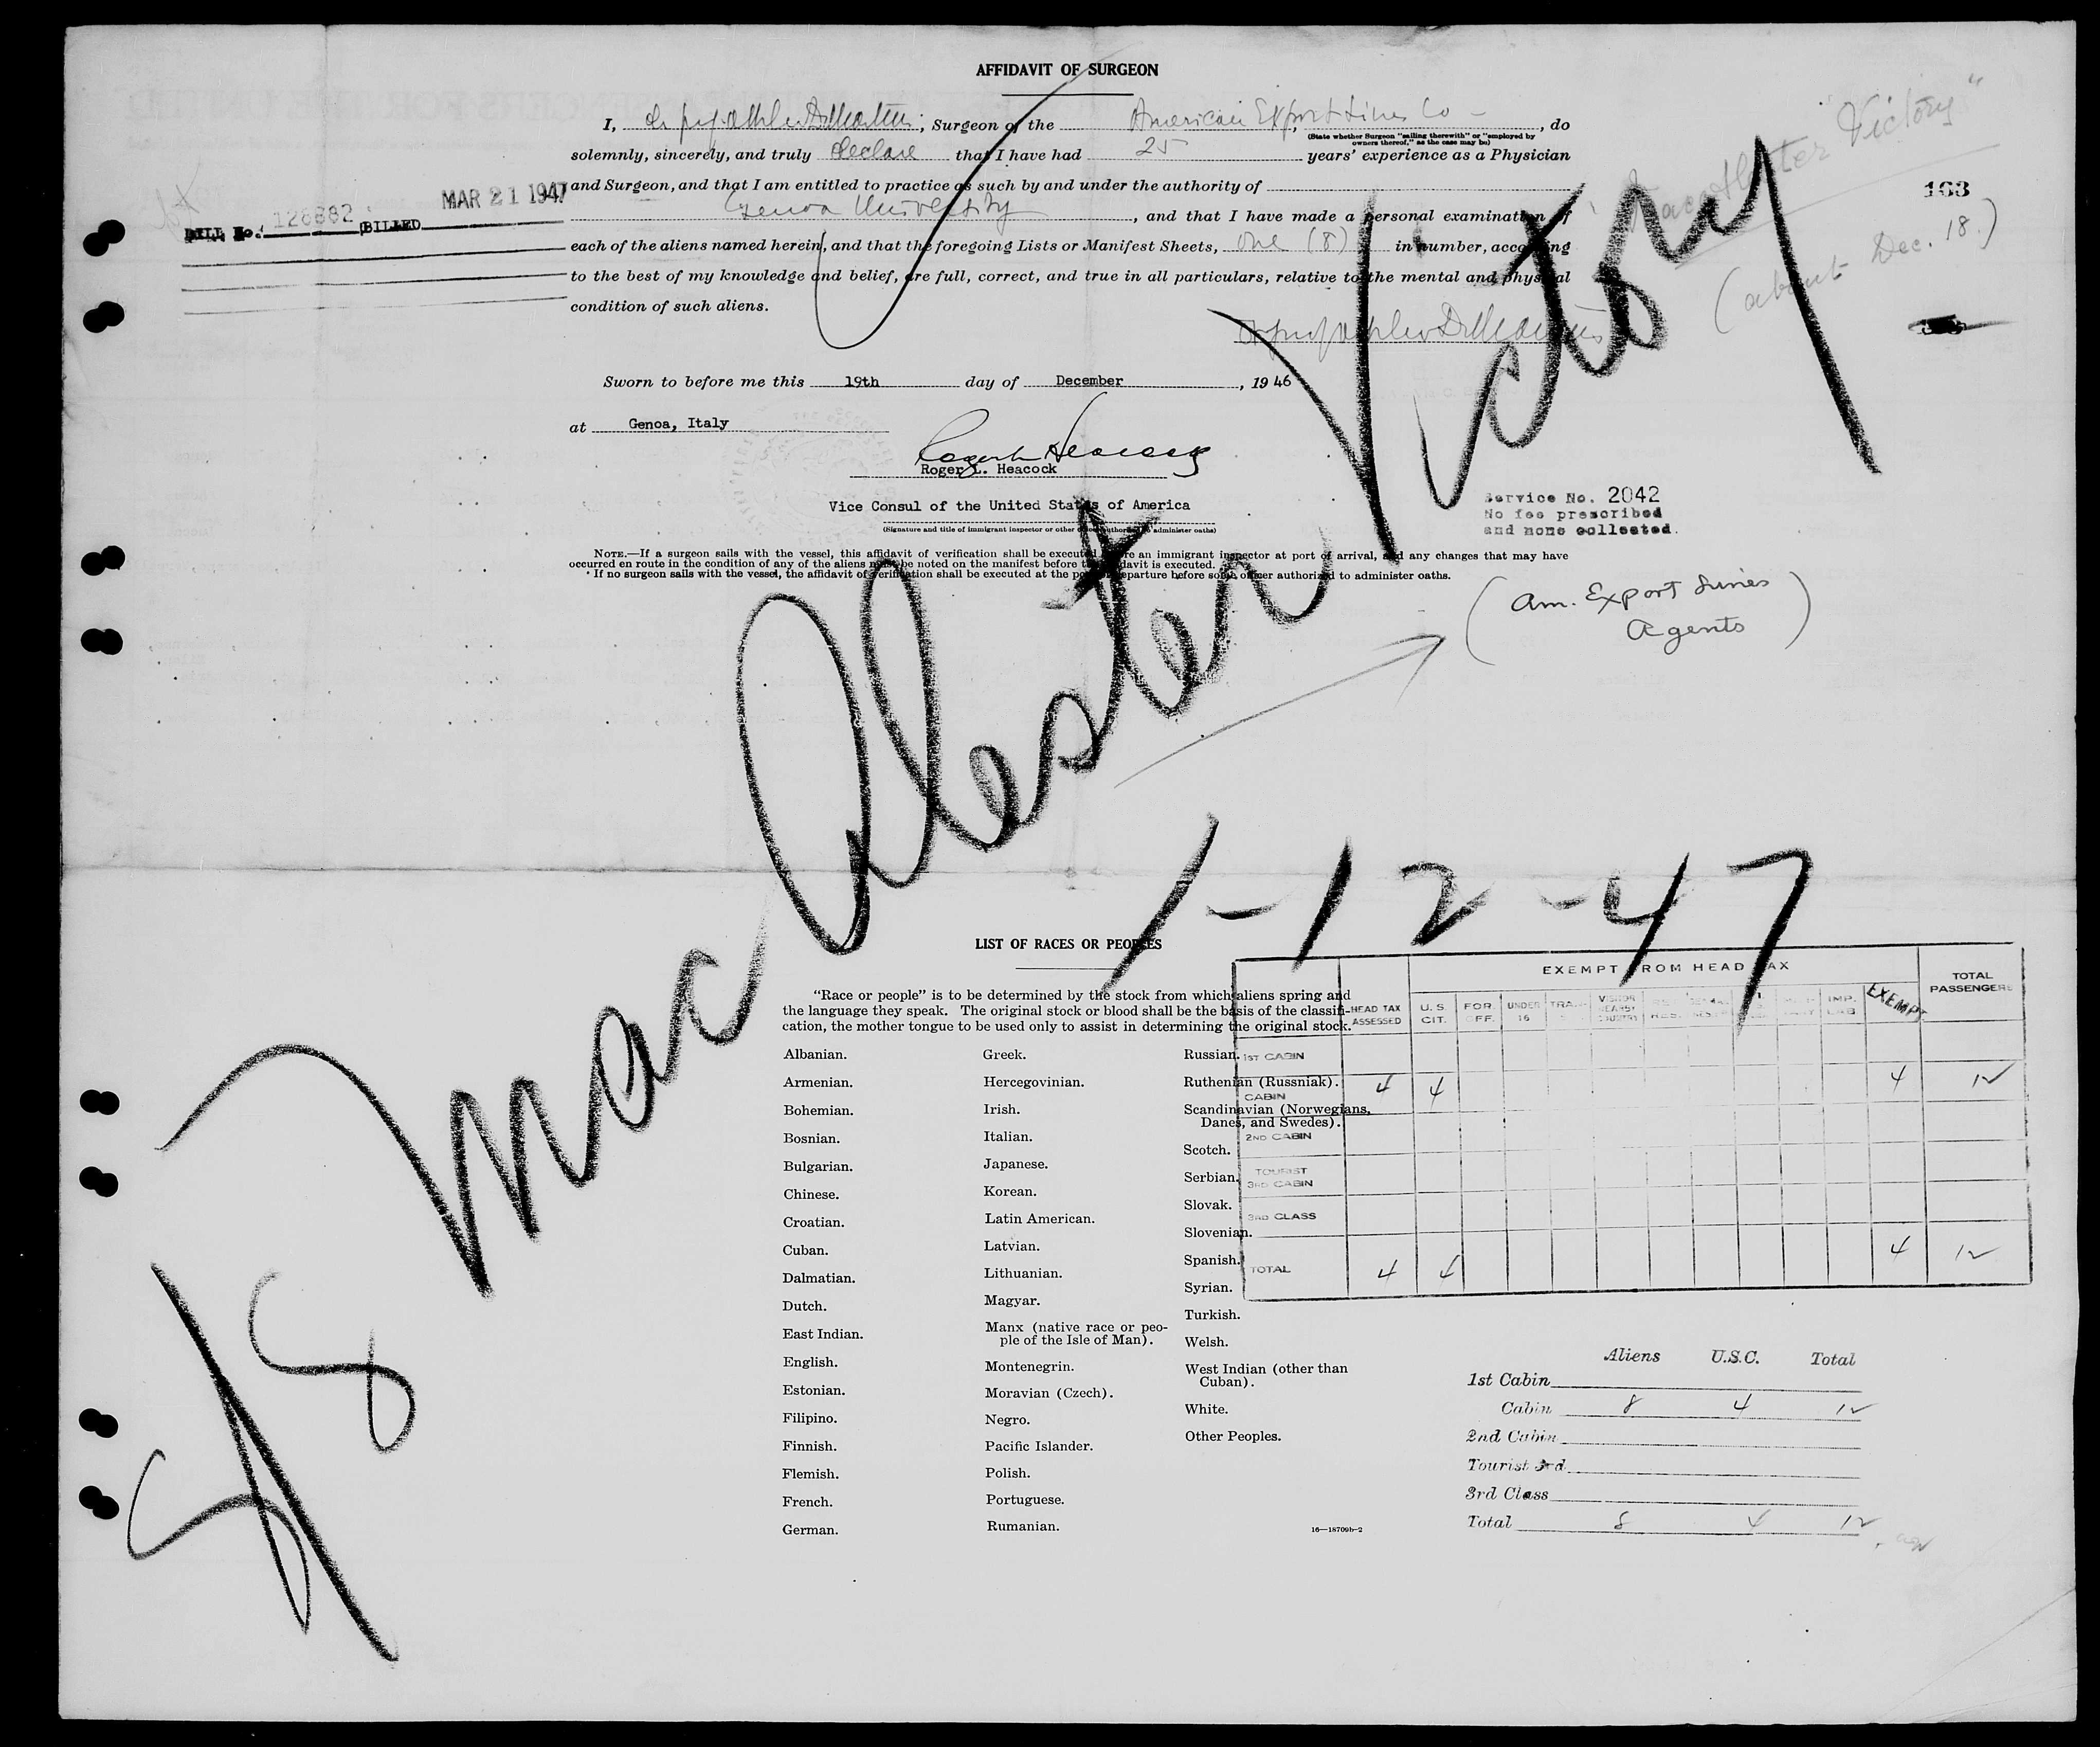 AFFIDAVIT OF SURGEON
I, , Surgeon of the American Export Lines Co - , do
(State whether Surgeon "sailing therewith" or "employed by owners thereof," as the case may be)
solemnly, sincerely, and truly declare that I have had 25 years' experience as a Physician
and Surgeon, and that I am entitled to practice as such by and under the authority of
Genoa University, and that I have made a personal examination of
each of the aliens named herein, and that the foregoing Lists or Manifest Sheets, one (8) in number, according
to the best of my knowledge and belief, are full, correct, and true in all particulars, relative to the mental and physical
condition of such aliens.
MAR 21 1947
BILL No. 128882 BILLED
Victory"
(about Dec. 18.)
163
Sworn to before me this 19th day of December, 1946
at Genoa, Italy
Roger L. Heacock
Roger L. Heacock
Vice Consul of the United States of America
(Signature and title of immigrant inspector or other officer authorized to administer oaths)
Service No. 2042
No fee prescribed
and none collected.
NOTE.—If a surgeon sails with the vessel, this affidavit of verification shall be executed before an immigrant inspector at port of arrival, and any changes that may have
occurred en route in the condition of any of the aliens must be noted on the manifest before the affidavit is executed.
* If no surgeon sails with the vessel, the affidavit of verification shall be executed at the port of departure before some officer authorized to administer oaths.
(Am. Export Lines
Agents)
S/S MacAlester Victory
1-12-47
LIST OF RACES OR PEOPLES
"Race or people" is to be determined by the stock from which aliens spring and
the language they speak. The original stock or blood shall be the basis of the classifi-
cation, the mother tongue to be used only to assist in determining the original stock.
Albanian.
Armenian.
Bohemian.
Bosnian.
Bulgarian.
Chinese.
Croatian.
Cuban.
Dalmatian.
Dutch.
East Indian.
English.
Estonian.
Filipino.
Finnish.
Flemish.
French.
German.
Greek.
Hercegovinian.
Irish.
Italian.
Japanese.
Korean.
Latin American.
Latvian.
Lithuanian.
Magyar.
Manx (native race or peo-
ple of the Isle of Man).
Montenegrin.
Moravian (Czech).
Negro.
Pacific Islander.
Polish.
Portuguese.
Rumanian.
Russian.
Ruthenian (Russniak).
Scandinavian (Norwegians,
Danes, and Swedes).
Scotch.
Serbian.
Slovak.
Slovenian.
Spanish.
Syrian.
Turkish.
Welsh.
West Indian (other than
Cuban).
White.
Other Peoples.
16—18709b-2
EXEMPT FROM HEAD TAX
HEAD TAX ASSESSED U.S. CIT. FOR. OFF. UNDER 16 IMP. LAB EXEMPT TOTAL PASSENGERS
1ST CABIN
CABIN 4 4 4 12
2ND CABIN
TOURIST 3RD CABIN
3RD CLASS
TOTAL 4 4 4 12
Aliens U.S.C. Total
1st Cabin
Cabin 8 4 12
2nd Cabin
Tourist 3rd
3rd Class
Total 8 4 12